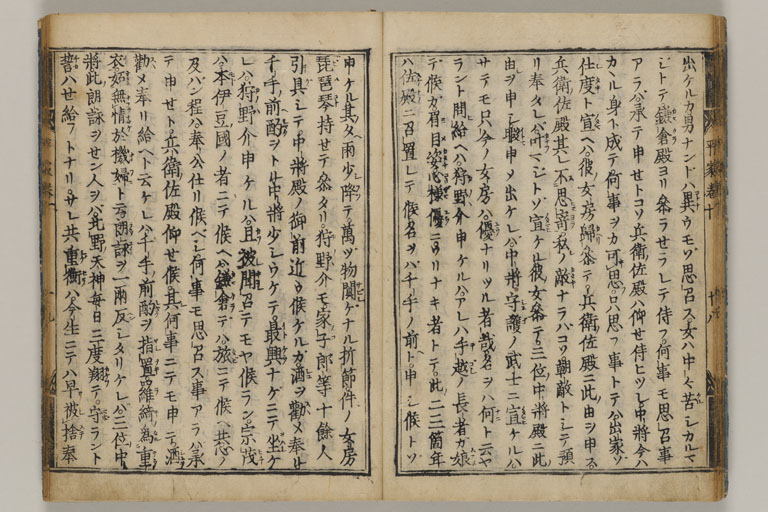 出ケルカ男ナンドハ異ウモゾ思召ス女ハ中々苦シカルマ
シトテ鎌倉殿ヨリ參ラセラレテ侍フ何事モ思召事
アラハ承テ申セトコソ兵衛佐殿ハ仰セ侍ヒツレ中將今ハ
カヽル身ト成テ何事ヲカ可思召ハ思フ事トテハ出家ソ
仕度ト宣ヘハ彼女房歸參テ兵衛佐殿ニ此由ヲ申ス
兵衛佐殿其レ不思寄私ノ敵ナラハコソ朝敵トシテ預
リ奉タレハ叶マシトソ宣ケル彼女參テ三位中將殿ニ此
由ヲ申シ暇申メ出ケレハ中將守護ノ武士ニ宣ケルハ
サテモ只今ノ女房ハ優ナリツル者哉名ヲハ何ト云ヤ
ラント問給ヘハ狩野介申ケルハアレハ手越ノ長者カ娘
テ候カ眉目姿心樣優ニワリナキ者トテ此二三箇年
ハ佐殿ニ召置レテ候名ヲハ千手ノ前ト申シ候トソ
平家卷十
十八
申ケル其夕雨少降テ萬ツ物閑ケナル折節件ノ女房
琵琶琴持セテ參タリ狩野介モ家子郎等十餘人
引具シテ中將殿ノ御前近ウ候ケルカ酒ヲ勸メ奉ル
千手前酌ヲトル中將少シウケテ最興ナケニテ坐ケ
レハ狩野介申ケルハ且被聞召テモヤ候ラン宗茂
ハ本伊豆國ノ者ニテ候ヘハ鎌倉テハ旅ニテ候ヘ共心ノ
及ハン程ハ奉公仕リ候ヘシ何事モ思召ス事アラハ承
テ申セト兵衛佐殿仰セ候其何事ニテモ申テ酒
勸メ奉リ給ヘト云ケレハ千手前酌ヲ指置羅綺為重
衣妬無情於機婦ト云朗詠ヲ一兩反シタリケレハ三位中
將此朗詠ヲセン人ヲハ北野天神毎日三度翔テ守ラント
誓ハセ給フトナリサレ共重衡ハ今生ニテハ早被捨奉